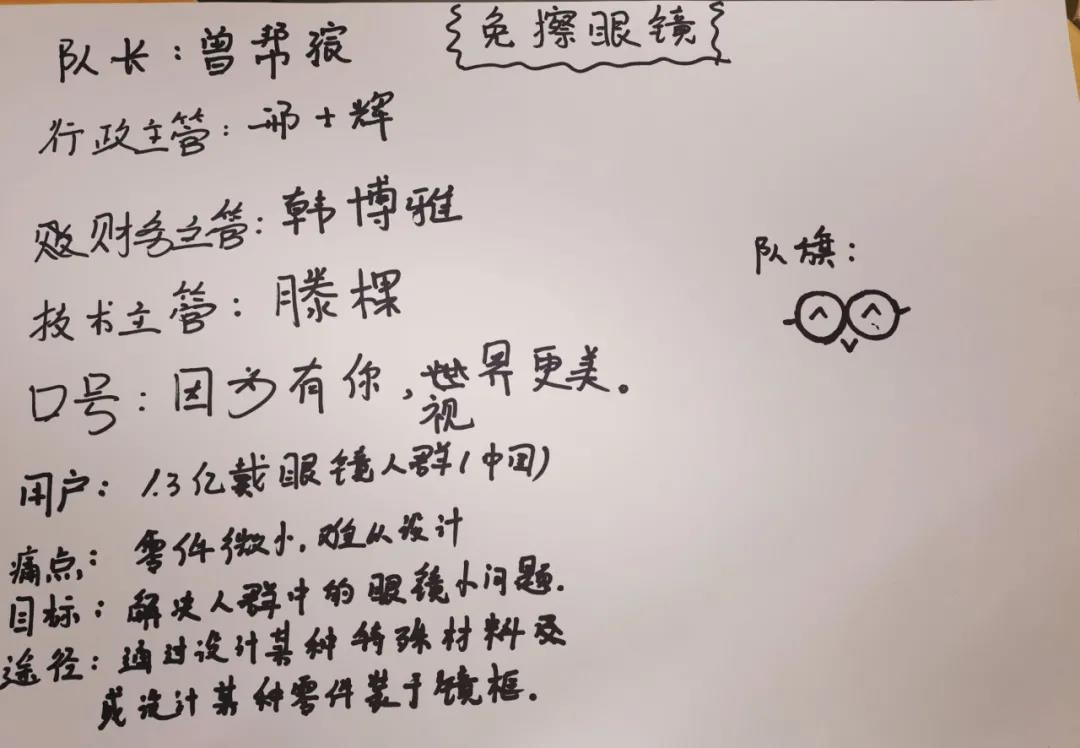 免擦眼镜
队长：曾帮
行政主管：邢士辉
财务主管：韩博雅
技术主管：滕棵
口号：因为有你，世界更美。
视
队旗：
用户：1.3亿戴眼镜人群(中国)
痛点：零件微小，难以设计
目标：解决人群中的眼镜小问题.
途径：通过设计某种特殊材料及
或设计某种零件装于镜框.